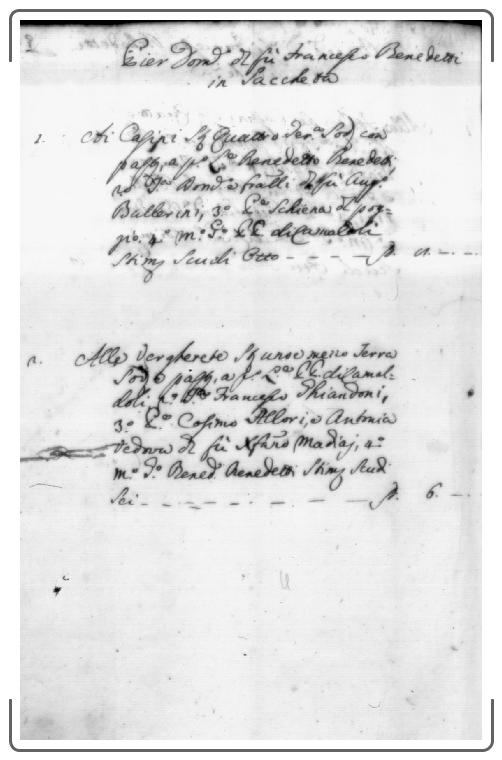 Pier Dom.º d fù Francesco Benedetti
in Sacchetta
1. Ai Casini Sq Quattro Ter.ª Sod con
pass, a p.º L.ª Benedetto Benedet,
2.º Dom.º e fratlli d fù Aug.º
Ballerini, 3.º E.ª Schiena d pog-
gio, 4.º m.º d.º EE di Camaldoli
Stim Scudi Otto - - - - - -
2. Alle Vergherete Sq uno e mezzo Terra
Sod e pass, a p.º L.ª EE di Camal-
doli, 2.º Francesco Ghiandoni,
3.º E.ª Cosimo Allori, e Antonia
Vedova d fù Xfano Madiaj, 4.º
m.º d.º Bened.º Benedetti Stim Scudi
Sei - - - - - - - 6. - -